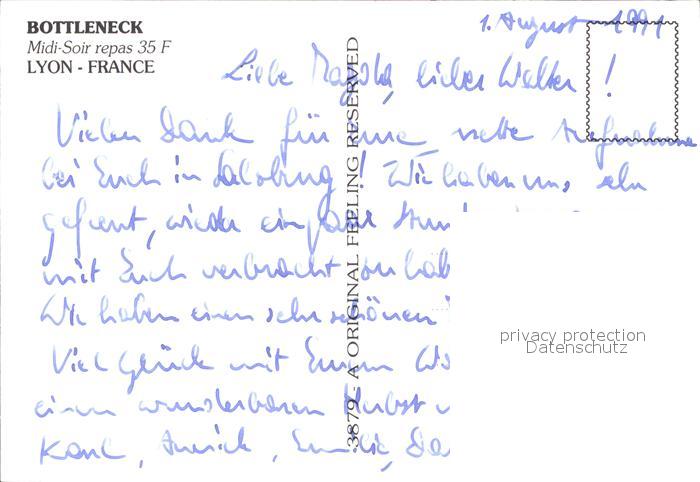 BOTTLENECK
Midi-Soir repas 35 F
LYON - FRANCE
1. August 1991
Liebe Magda, lieber Walter !
Vielen Dank für eure nette Aufnahme
bei Euch in Salzburg! Wir haben uns sehr
gefreut, wieder ein paar
mit Euch verbracht zu hab
Wir haben einen sehr schönen
Viel Glück mit Eurem
einen wunderbaren Herbst
Karl,
3879 - A ORIGINAL FEELING RESERVED
privacy protection
Datenschutz